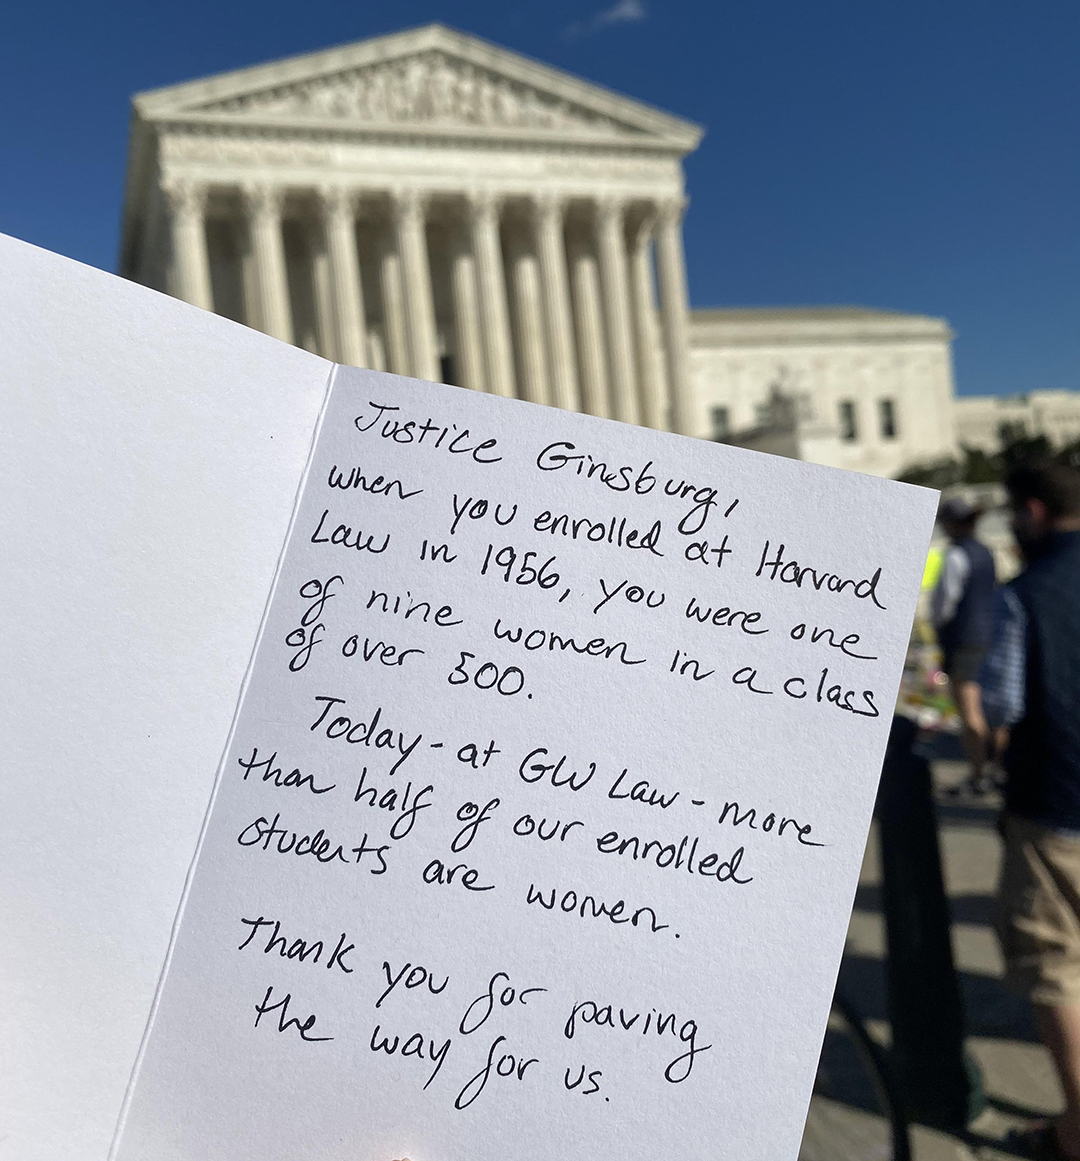 Justice Ginsburg,
when you enrolled at Harvard
Law in 1956, you were one
of nine women in a class
of over 500.
Today - at GW Law - more
than half of our enrolled
students are women.
Thank you for paving
the way for us.